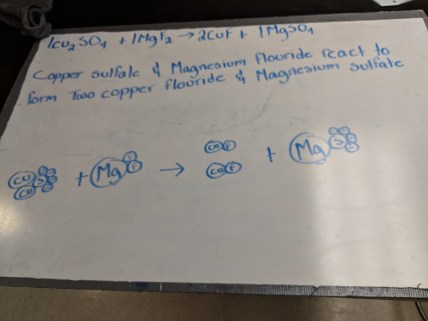 1Cu₂SO₄ + 1MgF₂ → 2CuF + 1MgSO₄
Copper sulfate & Magnesium flouride react to
form Two copper flouride & Magnesium sulfate
Cu Cu S + Mg F F → Cu F + Mg S
Cu F